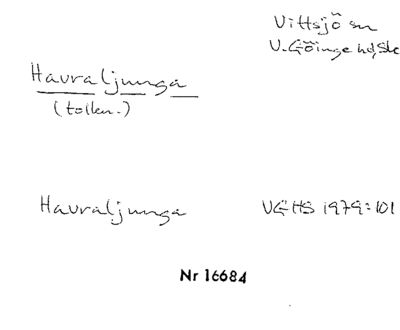 Vittsjö sn
V. Göinge hd, Sk
Havraljunga
(tolkn.)
Havraljunga VGHS 1979:101
Nr 16684